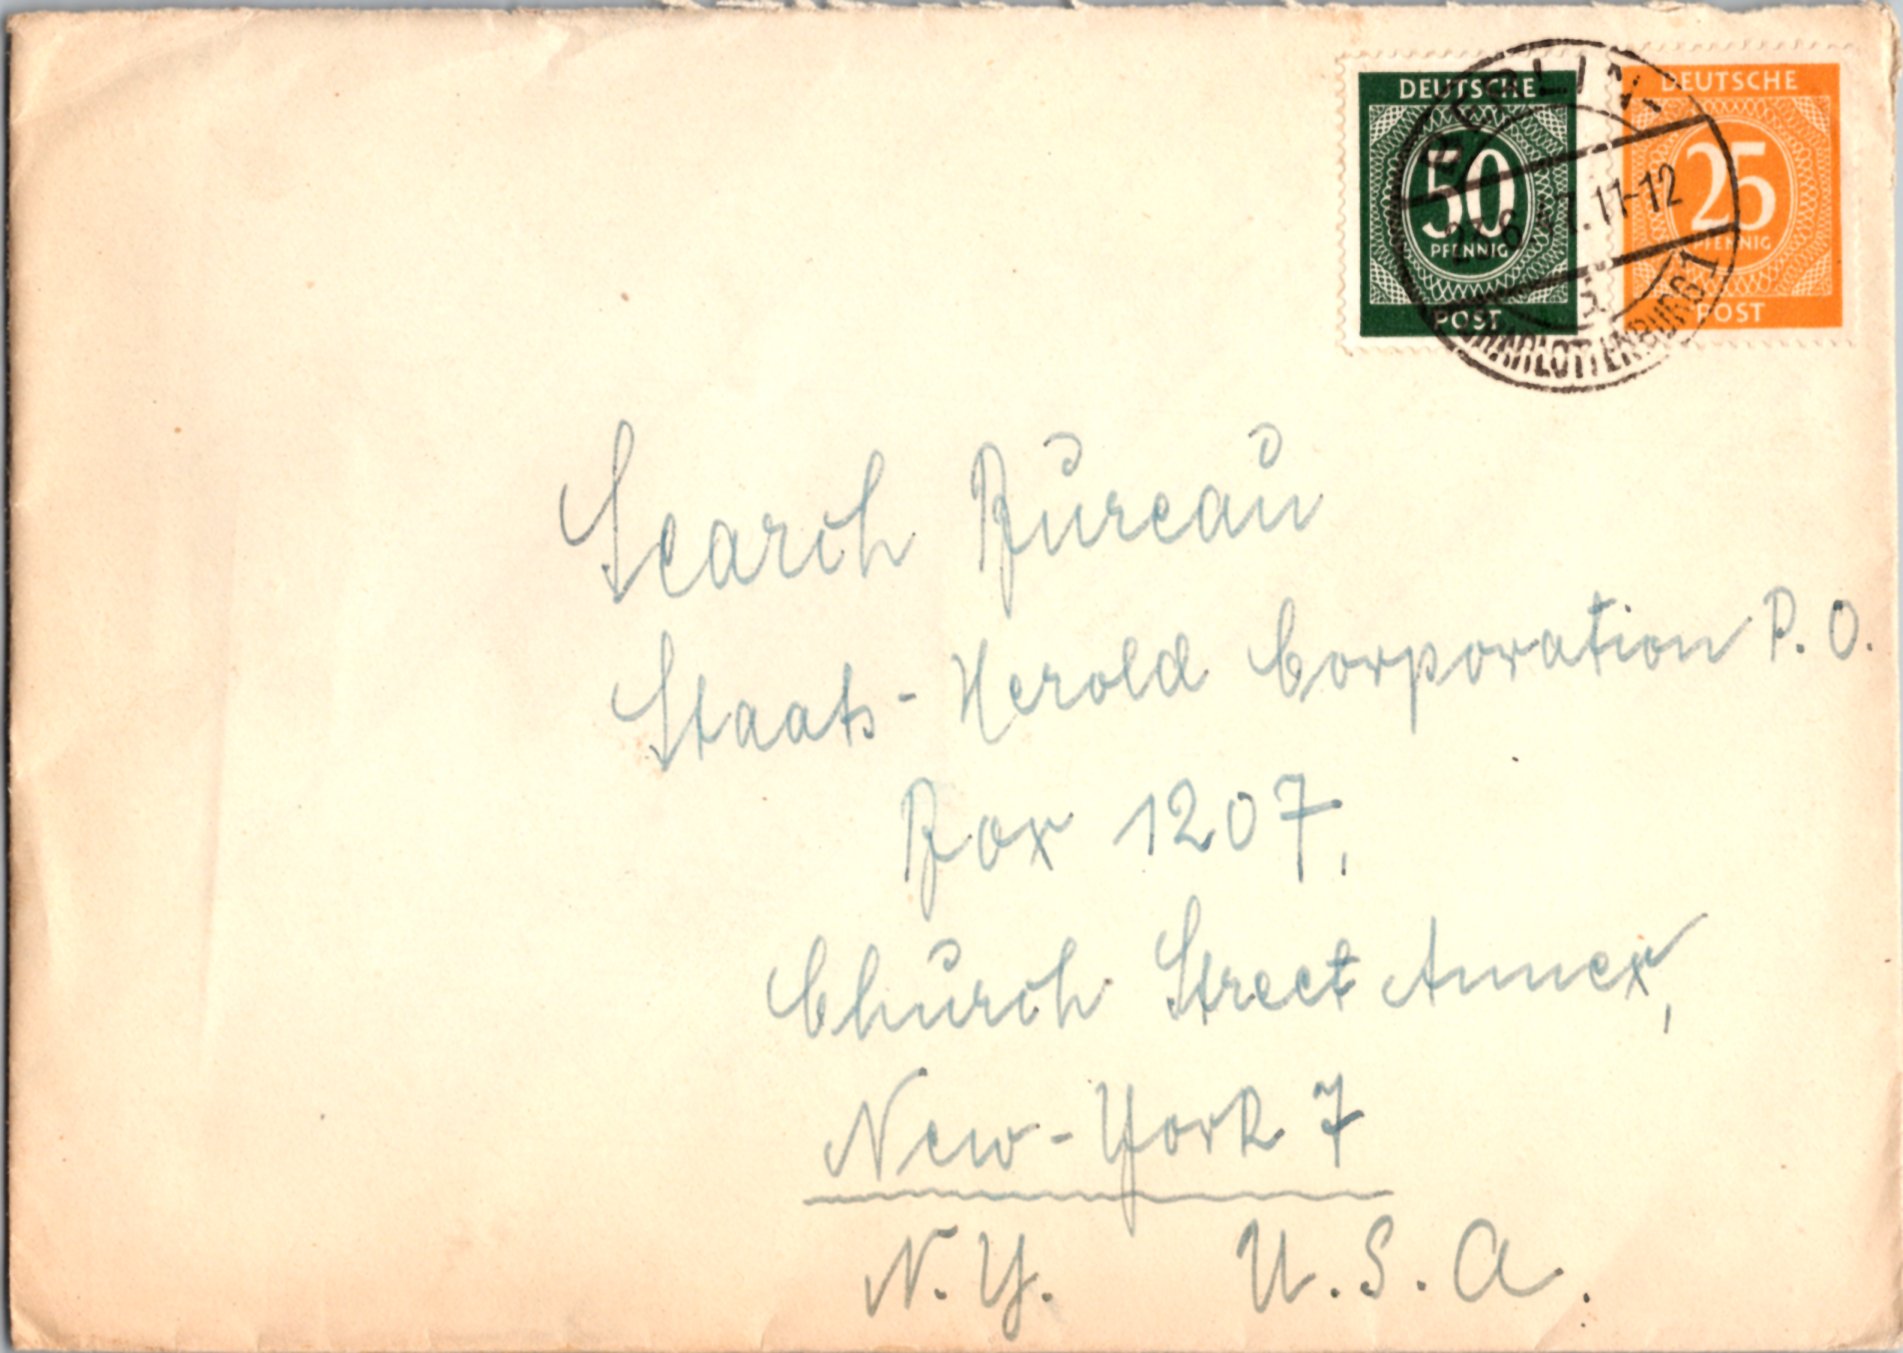 DEUTSCHE
50
PFENNIG
POST
DEUTSCHE
25
PFENNIG
POST
BERLIN-
11-12
CHARLOTTENBURG 1
Search Bureau
Staats-Herold Corporation P. O.
Box 1207,
Church Street Annex,
New-York 7
N. Y. U. S. A.